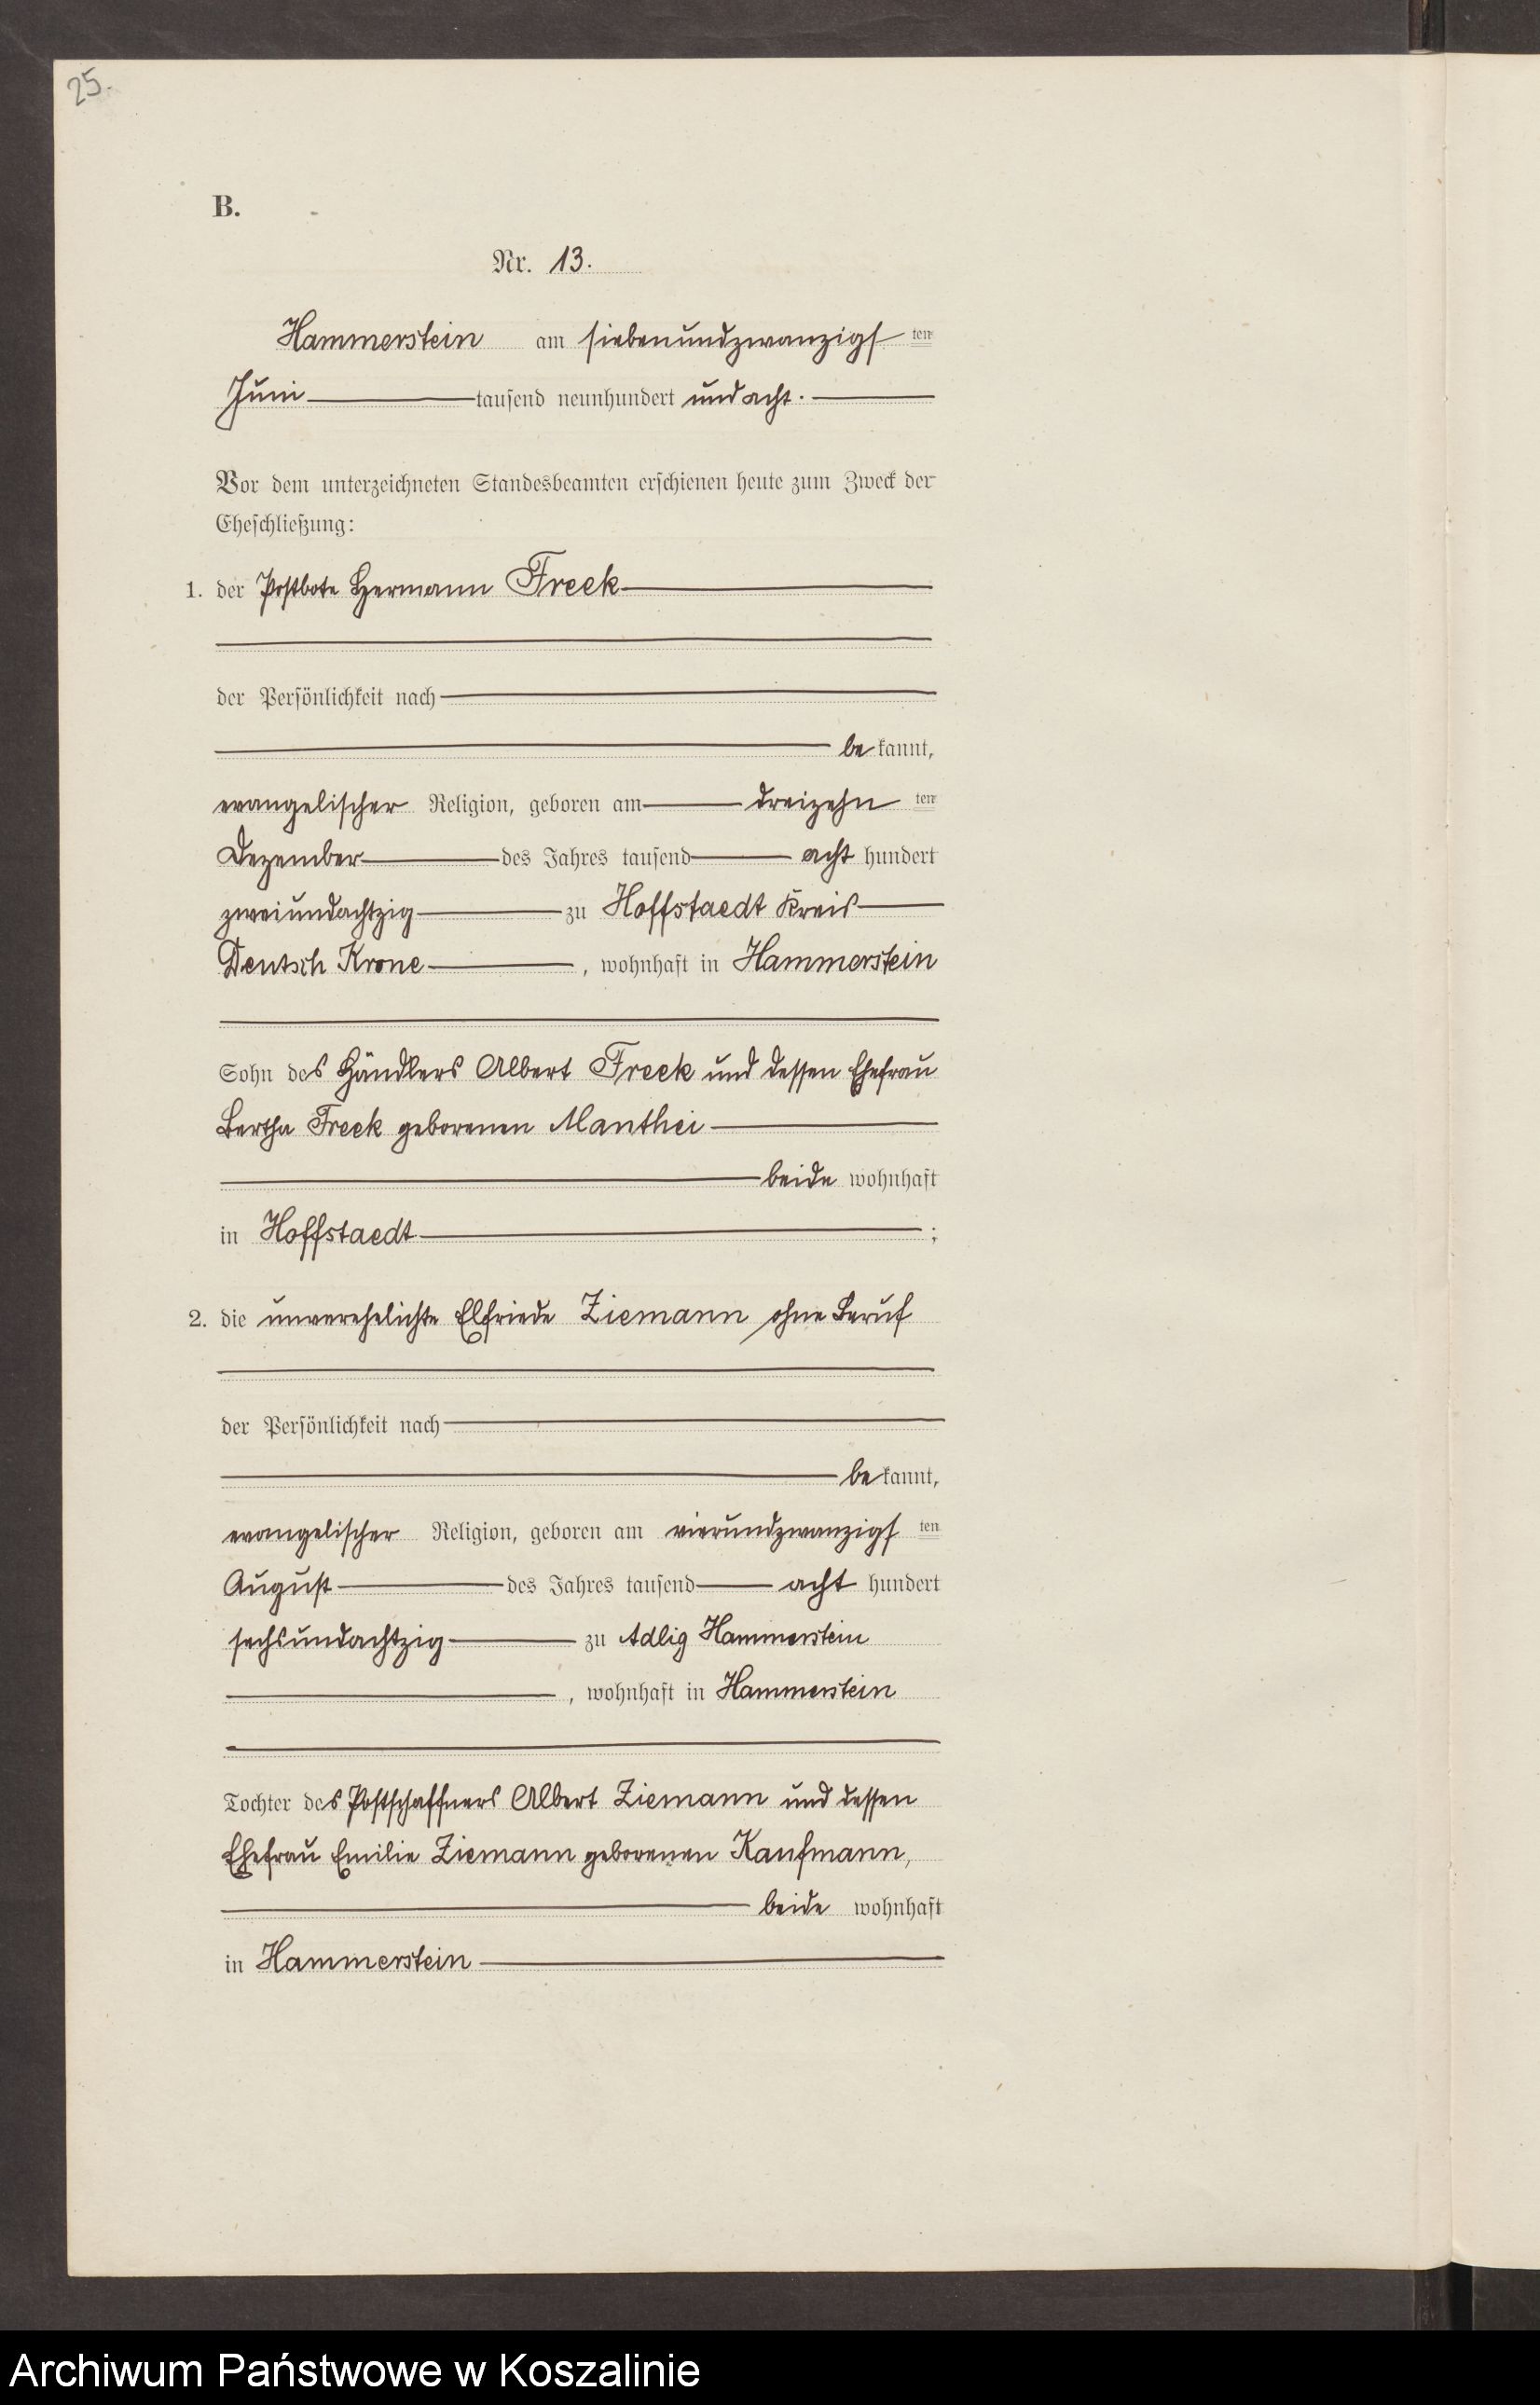 25.
B.
Nr. 13.
Hammerstein am siebenundzwanzigsten
Juni tausend neunhundert und acht.
Vor dem unterzeichneten Standesbeamten erschienen heute zum Zweck der
Eheschließung:
1. der Postbote Hermann Freek
der Persönlichkeit nach
bekannt,
evangelischer Religion, geboren am dreizehnten
Dezember des Jahres tausend acht hundert
zweiundachtzig zu Hoffstaedt Kreis
Deutsch Krone, wohnhaft in Hammerstein
Sohn des Händlers Albert Freek und dessen Ehefrau
Bertha Freek geborenen Manthei
beide wohnhaft
in Hoffstaedt;
2. die unverehelichte Elfriede Ziemann ohne Beruf
der Persönlichkeit nach
bekannt,
evangelischer Religion, geboren am vierundzwanzigsten
August des Jahres tausend acht hundert
sechsundachtzig zu Adlig Hammerstein
, wohnhaft in Hammerstein
Tochter des Postschaffners Albert Ziemann und dessen
Ehefrau Emilie Ziemann geborenen Kaufmann,
beide wohnhaft
in Hammerstein
Archiwum Państwowe w Koszalinie